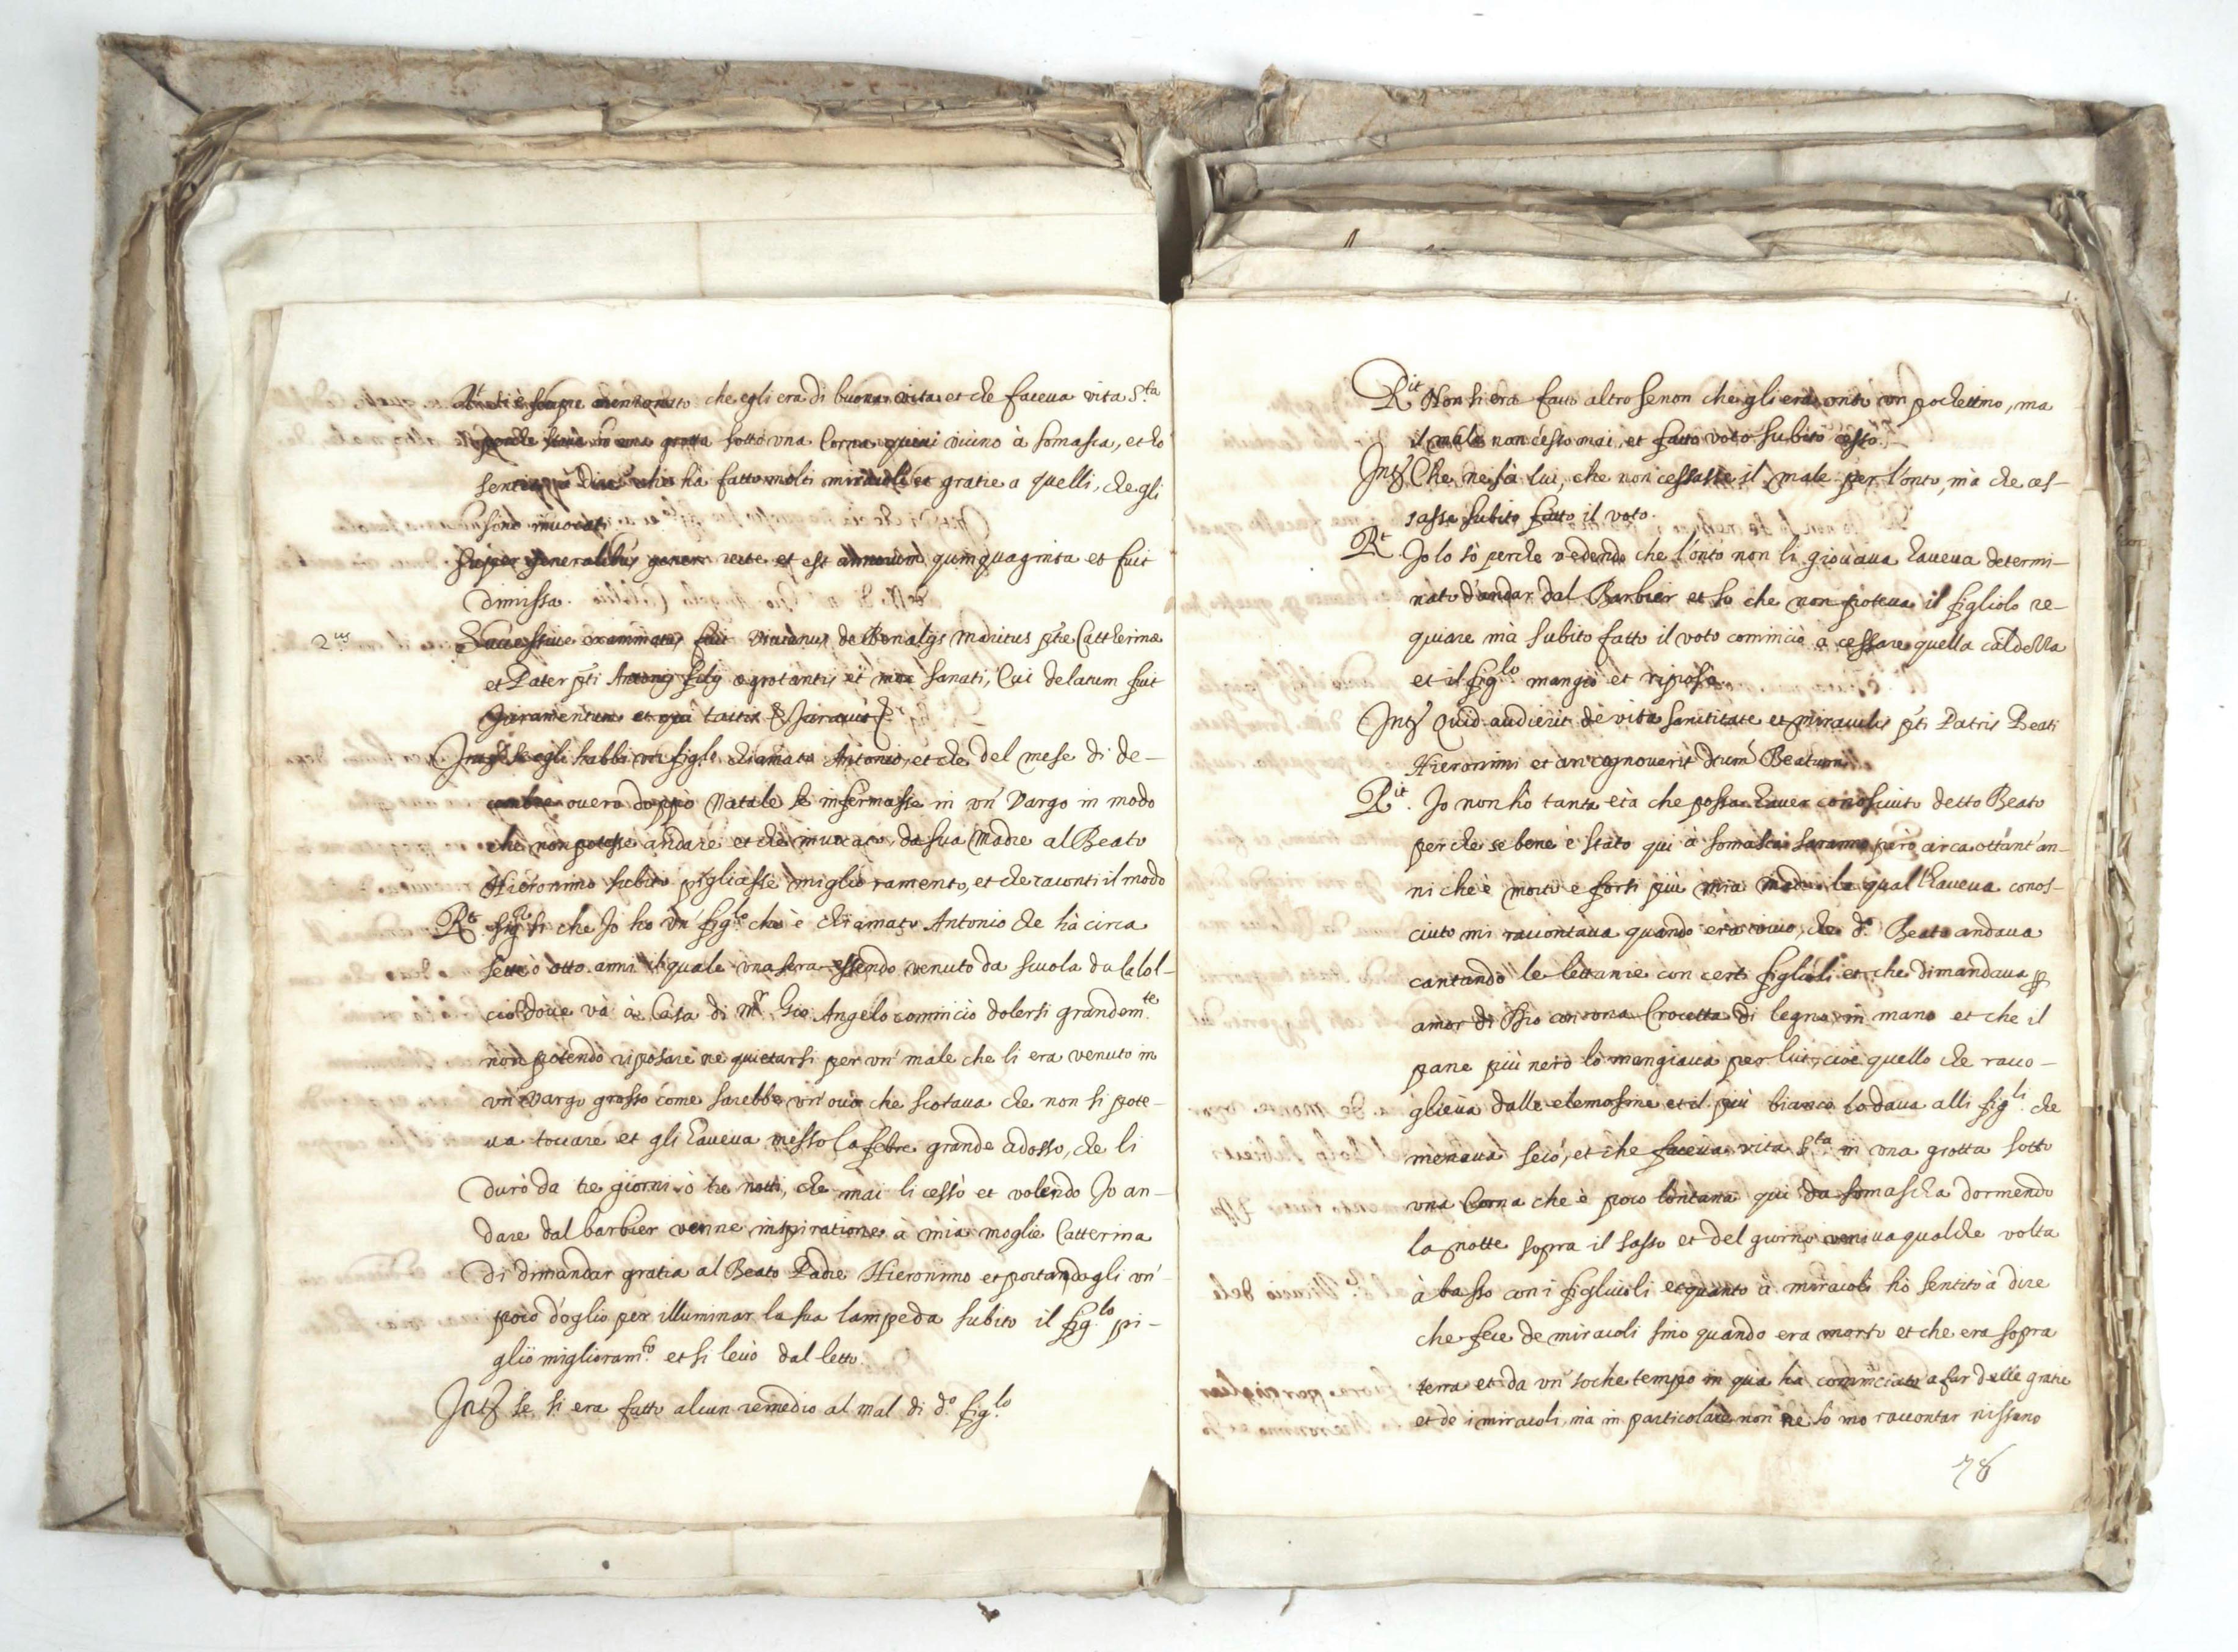 che egli era di buona vita et che faceua vita S.ta
sotto una Corna quiui vicino à Somasca, et ho
dire che hà fatto molti miracoli et gratie a quelli, che gli
sono inuocati
Super generalibus recte et est annorum quinquaginta et fuit
dimissa.
2.us Successiue examinatus fuit de Benalijs Maritus p.te Catherinæ
et Pater p.ti Antonij filij ægrotantis et sanati, Cui delatum fuit
Juramentum et tactis Jurauit
Int.s Se egli habbi un fig.lo chiamato Antonio, et che del mese di de-
cembre ouero doppò Natale se infermasse in vn' Vargo in modo
che non potesse andare et che inuocato da sua Madre al Beato
Hieronimo subito pigliasse miglioramento, et che raconti il modo
R.t Sig.r si che Jo ho vn' fig.lo che è chiamato Antonio che hà circa
sette ò otto anni il quale vna sera essendo venuto da scuola da Calol-
cio doue và à Casa di M.r Gio: Angelo cominciò dolersi grandem.te
non potendo riposare ne quietarsi per vn' male che li era venuto in
vn' Vargo grosso come sarebbe vn' ouo che scotaua che non si pote-
ua toccare et gli haueua messo la febre grande adosso, che li
durò da tre giorni ò tre notti, che mai li cessò et volendo Jo an-
dare dal barbier venne inspiratione à mia moglie Catterina
di dimandar gratia al Beato Padre Hieronimo et portandogli vn'
poco d'oglio per illuminar la sua lampeda subito il fig.lo pi-
gliò miglioram.to et si leuò dal letto.
Int.s se si era fatto alcun remedio al mal di d.o fig.lo
R.it Non si era fatto altro senon che gli era onto vn pochettino, ma
il male non cessò mai, et fatto voto subito cessò.
Int.s Che ne sà lui, che non cessasse il male per l'onto, mà che ces-
sasse subito fatto il voto.
R.t Jo lo sò perche vedendo che l'onto non li giouaua haueua determi-
nato d'andar dal Barbier et so che non poteua il figliolo re-
quiare mà subito fatto il voto cominciò a cessare quella caldezza
et il fig.lo mangiò et riposò.
Int.s Quid audierit de vita sanctitate et miraculis p.ti Patris Beati
Hieronimi et an cognouerit dictum Beatum
R.it. Jo non hò tanta età che possa hauer conosciuto detto Beato
perche se bene è stato qui à Somasca saranno però circa ottant'an-
ni che è morto e forsi più mia Madre la qual l'haueua conos-
ciuto mi raccontaua quando era viua, che d.o Beato andaua
cantando le lettanie con certi figlioli et che dimandaua p
amor di Dio con vna Crocetta di legno in mano et che il
pane più nero lo mangiaua per lui, cioè quello che racco-
glieua dalle elemosine et il più bianco lo daua alli fig.li che
menaua seco, et che faceua vita S.ta in vna grotta sotto
vna Corna che è poco lontana qui da Somascha dormendo
la notte sopra il sasso et del giorno veniua qualche volta
à basso con i figliuoli et quanto à miracoli hò sentito à dire
che fece de miracoli sino quando era morto et che era sopra
terra et da vn' poche tempo in quà ha cominciato a far delle gratie
et de i miracoli, mà in particolare non ne so mo raccontar nissuno
78